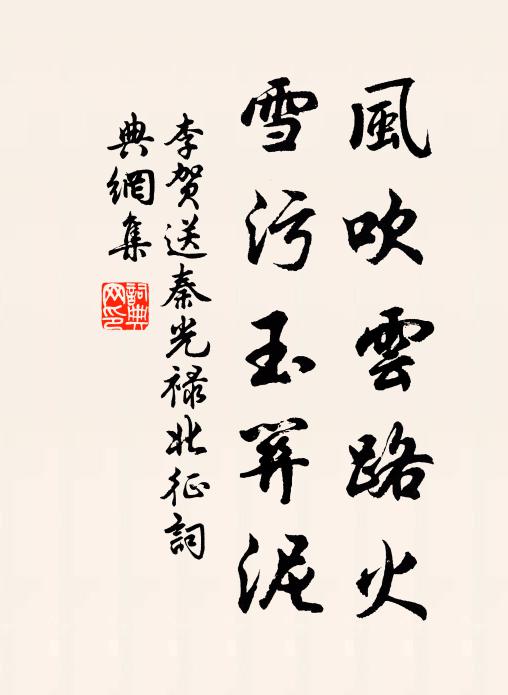 風吹雲路火
雪污玉關泥
李賀送秦光祿北征詞
典網集
詞典
网印